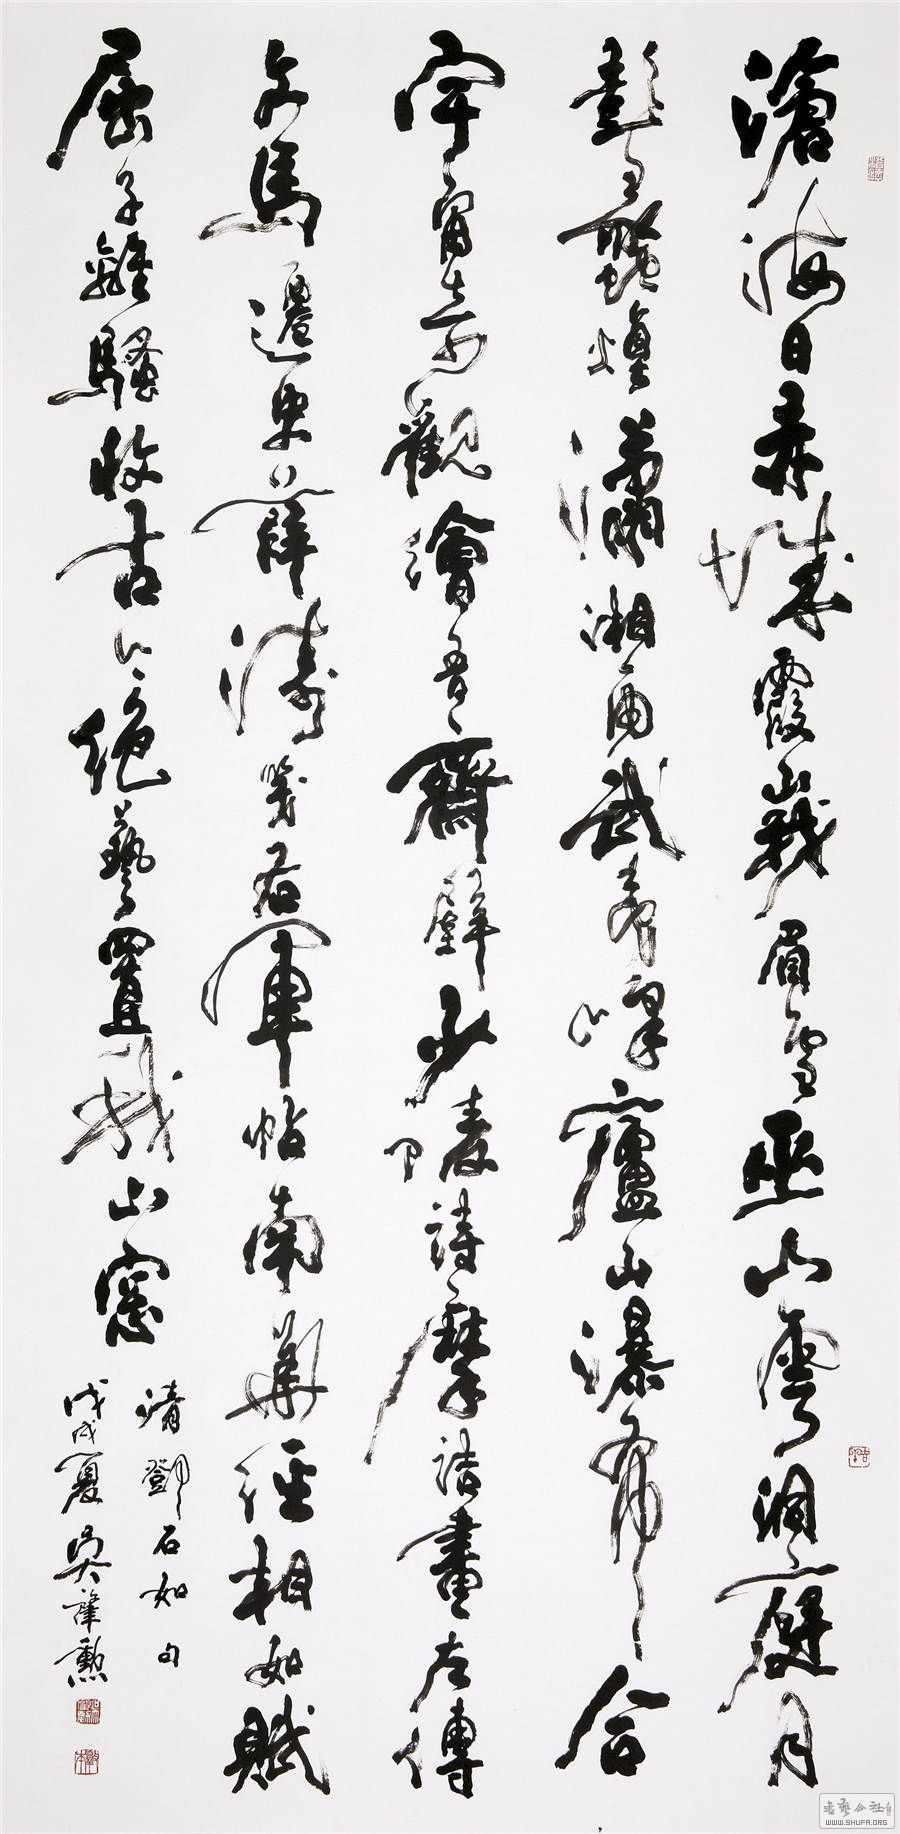 滄海日赤城霞峨眉雪巫山雲洞庭月
彭蠡煙瀟湘雨武夷峰廬山瀑布合
宇宙奇觀繪吾齋壁少陵詩摩詰畫左傳
文馬遷史薛濤箋右軍帖南華經相如賦
屈子離騷收古今絕藝置我山窗
清鄧石如句
戊戌夏吳肇勳
WWW.SHUFA.ORG